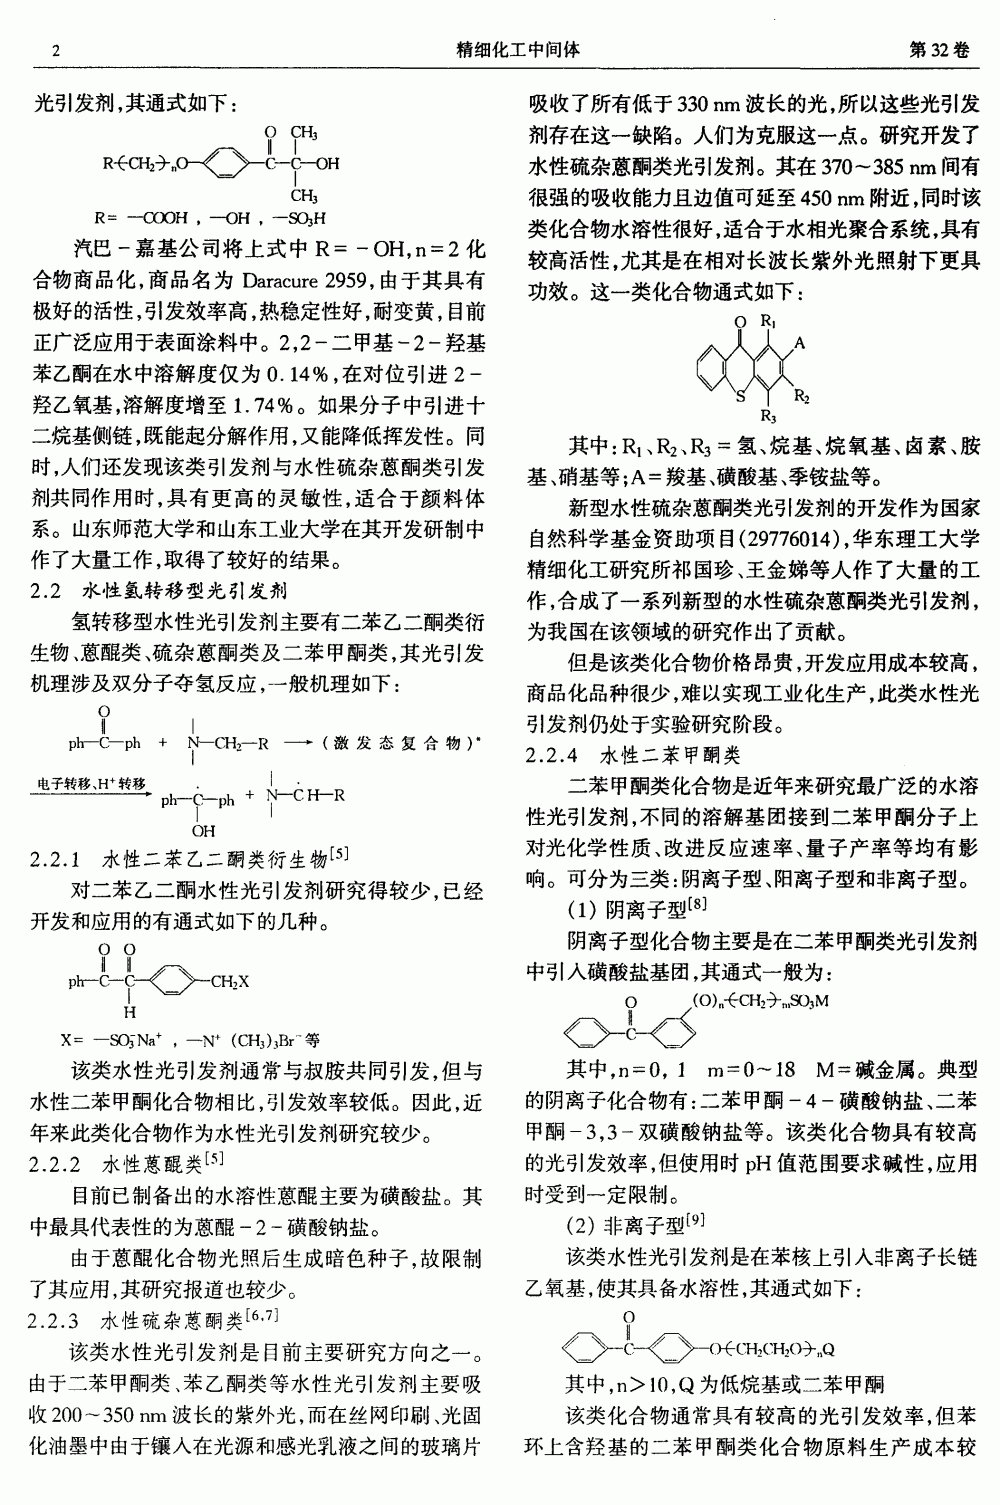 2
精细化工中间体
第 32 卷
光引发剂,其通式如下:
O CH₃
R(CH₂)ₙO—C—C—OH
CH₃
R= —COOH , —OH , —SO₃H
汽巴－嘉基公司将上式中 R=－OH,n=2 化
合物商品化,商品名为 Daracure 2959,由于其具有
极好的活性,引发效率高,热稳定性好,耐变黄,目前
正广泛应用于表面涂料中。2,2－二甲基－2－羟基
苯乙酮在水中溶解度仅为 0.14%,在对位引进 2－
羟乙氧基,溶解度增至 1.74%。如果分子中引进十
二烷基侧链,既能起分解作用,又能降低挥发性。同
时,人们还发现该类引发剂与水性硫杂蒽酮类引发
剂共同作用时,具有更高的灵敏性,适合于颜料体
系。山东师范大学和山东工业大学在其开发研制中
作了大量工作,取得了较好的结果。
2.2 水性氢转移型光引发剂
氢转移型水性光引发剂主要有二苯乙二酮类衍
生物、蒽醌类、硫杂蒽酮类及二苯甲酮类,其光引发
机理涉及双分子夺氢反应,一般机理如下:
O
ph—C—ph + N—CH₂—R → (激发态复合物)*
电子转移、H⁺转移
ph—C—ph + N—CH—R
OH
2.2.1 水性二苯乙二酮类衍生物[5]
对二苯乙二酮水性光引发剂研究得较少,已经
开发和应用的有通式如下的几种。
O O
ph—C—C—CH₂X
H
X= —SO₃⁻Na⁺ , —N⁺ (CH₃)₃Br⁻等
该类水性光引发剂通常与叔胺共同引发,但与
水性二苯甲酮化合物相比,引发效率较低。因此,近
年来此类化合物作为水性光引发剂研究较少。
2.2.2 水性蒽醌类[5]
目前已制备出的水溶性蒽醌主要为磺酸盐。其
中最具代表性的为蒽醌－2－磺酸钠盐。
由于蒽醌化合物光照后生成暗色种子,故限制
了其应用,其研究报道也较少。
2.2.3 水性硫杂蒽酮类[6,7]
该类水性光引发剂是目前主要研究方向之一。
由于二苯甲酮类、苯乙酮类等水性光引发剂主要吸
收 200～350 nm 波长的紫外光,而在丝网印刷、光固
化油墨中由于镶入在光源和感光乳液之间的玻璃片
吸收了所有低于 330 nm 波长的光,所以这些光引发
剂存在这一缺陷。人们为克服这一点。研究开发了
水性硫杂蒽酮类光引发剂。其在 370～385 nm 间有
很强的吸收能力且边值可延至 450 nm 附近,同时该
类化合物水溶性很好,适合于水相光聚合系统,具有
较高活性,尤其是在相对长波长紫外光照射下更具
功效。这一类化合物通式如下:
O R₁
A
S R₂
R₃
其中:R₁、R₂、R₃=氢、烷基、烷氧基、卤素、胺
基、硝基等;A=羧基、磺酸基、季铵盐等。
新型水性硫杂蒽酮类光引发剂的开发作为国家
自然科学基金资助项目(29776014),华东理工大学
精细化工研究所祁国珍、王金娣等人作了大量的工
作,合成了一系列新型的水性硫杂蒽酮类光引发剂,
为我国在该领域的研究作出了贡献。
但是该类化合物价格昂贵,开发应用成本较高,
商品化品种很少,难以实现工业化生产,此类水性光
引发剂仍处于实验研究阶段。
2.2.4 水性二苯甲酮类
二苯甲酮类化合物是近年来研究最广泛的水溶
性光引发剂,不同的溶解基团接到二苯甲酮分子上
对光化学性质、改进反应速率、量子产率等均有影
响。可分为三类:阴离子型、阳离子型和非离子型。
(1) 阴离子型[8]
阴离子型化合物主要是在二苯甲酮类光引发剂
中引入磺酸盐基团,其通式一般为:
O (O)ₙ(CH₂)ₘSO₃M
C
其中,n=0, 1 m=0～18 M=碱金属。典型
的阴离子化合物有:二苯甲酮－4－磺酸钠盐、二苯
甲酮－3,3－双磺酸钠盐等。该类化合物具有较高
的光引发效率,但使用时 pH 值范围要求碱性,应用
时受到一定限制。
(2) 非离子型[9]
该类水性光引发剂是在苯核上引入非离子长链
乙氧基,使其具备水溶性,其通式如下:
O
C—O(CH₂CH₂O)ₙQ
其中,n>10,Q 为低烷基或二苯甲酮
该类化合物通常具有较高的光引发效率,但苯
环上含羟基的二苯甲酮类化合物原料生产成本较